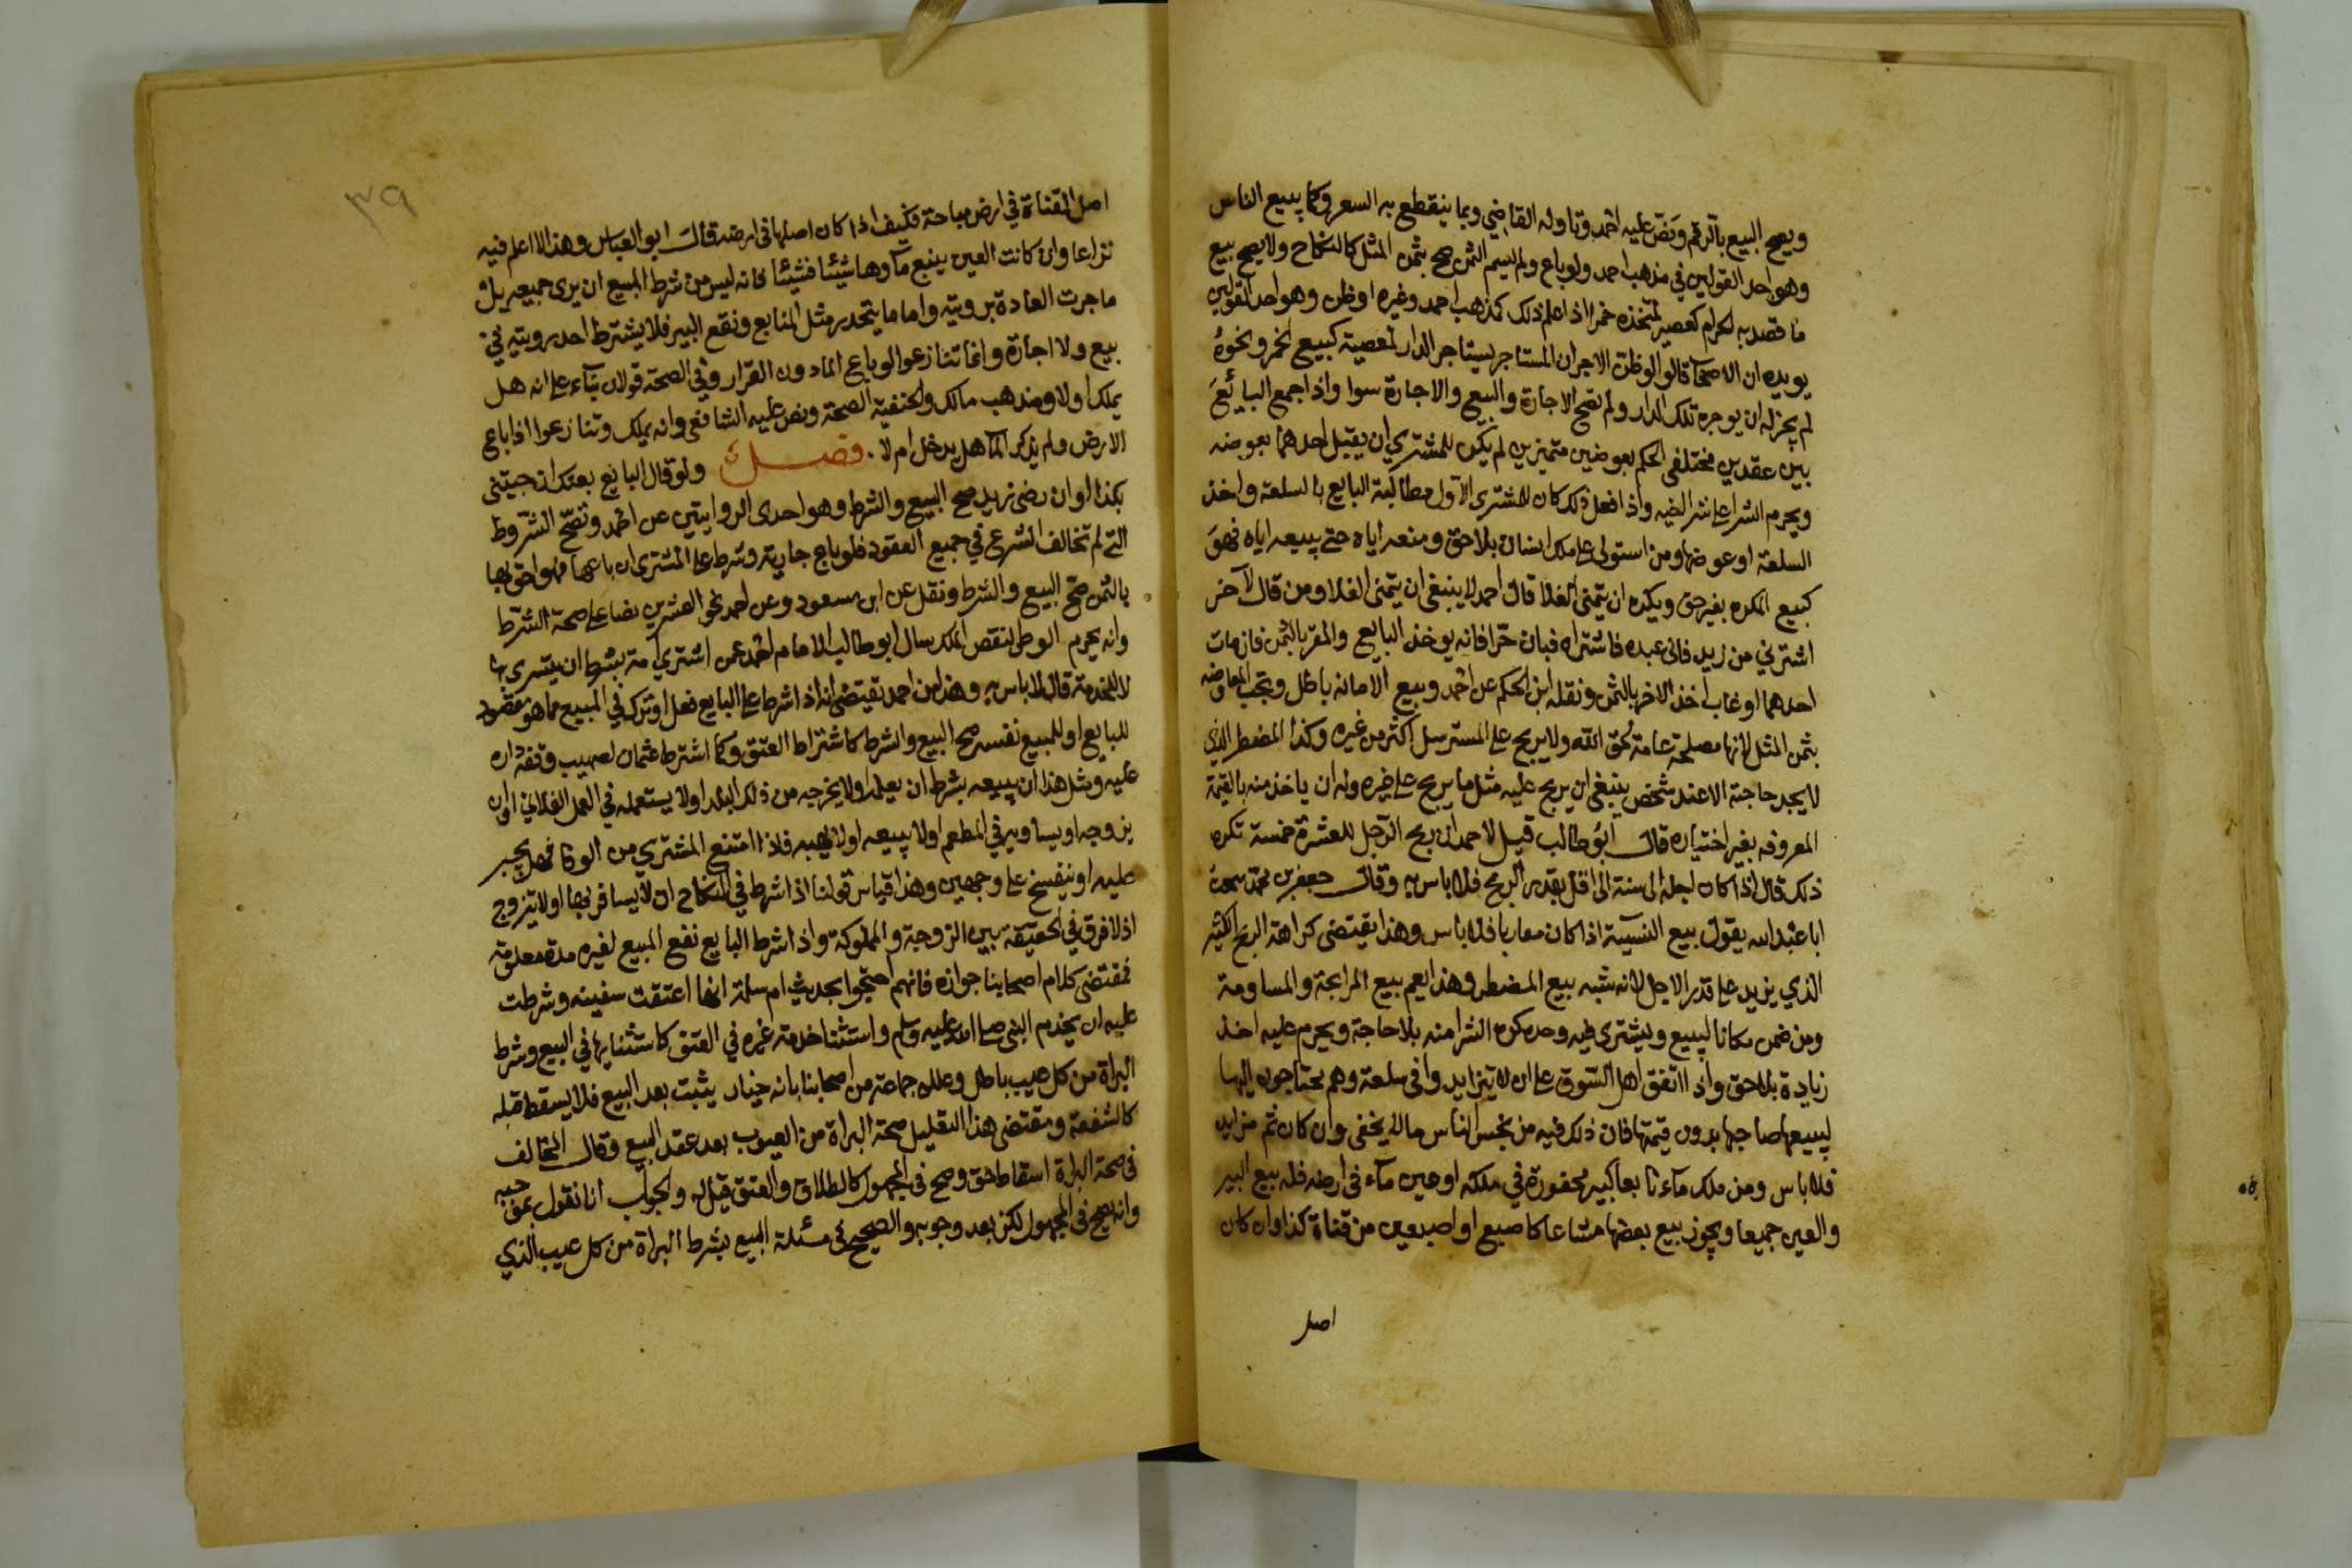 ويصح البيع بالرقم ونص عليه احمد وتاوله القاضي وبما ينقطع به السعر وكما يبيع الناس
وهو احد القولين في مذهب احمد ولو باع ولم يسم الثمن صح بثمن المثل كالنكاح ولا يصح بيع
ما قصد به الحرام كعصير لمتخذه خمرا اذا علم ذلك كمذهب احمد وغيره او ظن وهو احد القولين
يويده ان الاصحاب قالوا لو ظن الاجر ان المستاجر يستاجر الدار لمعصية كبيع الخمر ونحوه
لم يجز له ان يوجره تلك الدار ولم تصح الاجارة والبيع والاجارة سوا واذا جمع البائع
بين عقدين مختلفى الحكم بعوضين متميزين لم يكن للمشتري ان يقبل احدهما بعوضه
ويحرم الشرا على شرا اخيه واذا فعل ذلك كان للمشترى الاول مطالبة البايع بالسلعة واخذ
السلعة او عوضها ومن استولى على ملك انسان بلا حق ومنعه اياه حتى يبيعه اياه فهو
كبيع المكره بغير حق ويكره ان يتمنى الغلا قال احمد لا ينبغى ان يتمنى الغلا ومن قال لاخر
اشترني من زيد فانى عبده فاشتراه فبان حرا فانه يوخذ البايع والمقر بالثمن فان مات
احدهما او غاب اخذ الاخر بالثمن ونقله ابن الحكم عن احمد وبيع الامانه باطل ويجب المعاوضه
بثمن المثل لانها مصلحة عامة لحق الله ولا يربح على المسترسل اكثر من غيره وكذا المضطر الذي
لا يجد حاجته الا عند شخص ينبغى ان يربح عليه مثل ما يربح على غيره وله ان ياخذ منه بالقيمة
المعروفه بغير اختياره قال ابو طالب قيل لاحمد ان ربح الرجل للعشرة خمسة تكره
ذلك قال اذا كان اجله الى سنة الى اقل بقدر الربح فلا باس به وقال جعفر بن محمد سمعت
ابا عبد الله يقول بيع النسيئة اذا كان مقاربا فلا باس وهذا يقتضى كراهة الربح الكثير
الذي يزيد على قدر الاجل لانه شبه بيع المضطر وهذا يعم بيع المرابحة والمساومة
ومن ضمن مكانا ليبيع ويشترى فيه وحده كره الشرا منه بلا حاجة ويحرم عليه اخذ
زيادة بلا حق واذا اتفق اهل السوق على ان لا يتزايدوا في سلعة وهم محتاجون اليها
ليبيعها صاحبها بدون قيمتها فان ذلك فيه من بخس الناس ما لا يخفى وان كان ثم من يزايد
فلا باس ومن ملك مآء نابعا كبير محفورة في ملكه او عين مآء فى ارضه فله بيع البير
والعين جميعا ويجوز بيع بعضها مشاعا كاصبع او اصبعين من قناة كذا وان كان
اصل
٣٩
اصل القناة في ارض مباحة فكيف اذا كان اصلها فى ارضه قال ابو العباس وهذا لا اعلم فيه
نزاعا وان كانت العين ينبع مآوها شيئا فشيئا فانه ليس من شرط المبيع ان يرى جميعه بل
ما جرت العادة برويته واما ما يتجدد مثل المنابع ونقع البير فلا يشترط احد رويته في
بيع ولا اجارة وانما تنازعوا لو باع الما دون القرار وفي الصحة قولان بناء على انه هل
يملك او لا ومذهب مالك والحنفية الصحة ونص عليه الشافعى وانه يملك وتنازعوا اذا باع
الارض ولم يذكر الما هل يدخل ام لا . فصل ولو قال البايع بعتك ان جيتنى
بكذا او ان رضى زيد صح البيع والشرط وهو احدى الروايتين عن احمد وتصح الشروط
التى لم تخالف الشرع في جميع العقود فلو باع جارية وشرط على المشترى ان باعها فهو احق بها
بالثمن صح البيع والشرط ونقل عن ابن مسعود وعن احمد نحو العشرين نصا على صحة الشرط
وانه يحرم الوطى لنقص الملك سال ابو طالب الامام احمد عمن اشترى امة بشرط ان يتسرى بها
لا للخدمة قال لا باس به وهذا من احمد يقتضى انه اذا شرط على البايع فعل او ترك في المبيع مما هو مقصود
للبايع او للمبيع نفسه صح البيع والشرط كاشتراط العتق وكما اشترط عثمان لصهيب وقف داره
عليه ومثل هذا ان يبيعه بشرط ان يعلمه او لا يخرجه من ذلك البلد او لا يستعمله في العمل الفلاني او ان
يزوجه او يساويه في المطعم او لا يبيعه او لا يهبه فاذا امتنع المشتري من الوفا فهل يجبر
عليه او ينفسخ على وجهين وهذا قياس قولنا اذا شرط في النكاح ان لا يسافر بها او لا يتزوج
اذ لا فرق في الحقيقة بين الزوجة والمملوكة واذا شرط البايع نفع المبيع لغيره مدة معلومة
فمقتضى كلام اصحابنا جوازه فانهم احتجوا بحديث ام سلمة انها اعتقت سفينه وشرطت
عليه ان يخدم النبى صلى الله عليه وسلم واستثنا خدمة غيره في العتق كاستثنايها في البيع وشرط
البراة من كل عيب باطل وعلله جماعة من اصحابنا بانه خيار يثبت بعد البيع فلا يسقط قبله
كالشفعة ومقتضى هذا التعليل صحة البراة من العيوب بعد عقد البيع وقال المخالف
فى صحة البراة اسقاط حق وصح فى المجهول كالطلاق والعتق قيل له والجواب انا نقول بموجبه
وانه يصح فى المجهول لكن بعد وجوبه والصحيح فى مسئلة البيع بشرط البراة من كل عيب الذي